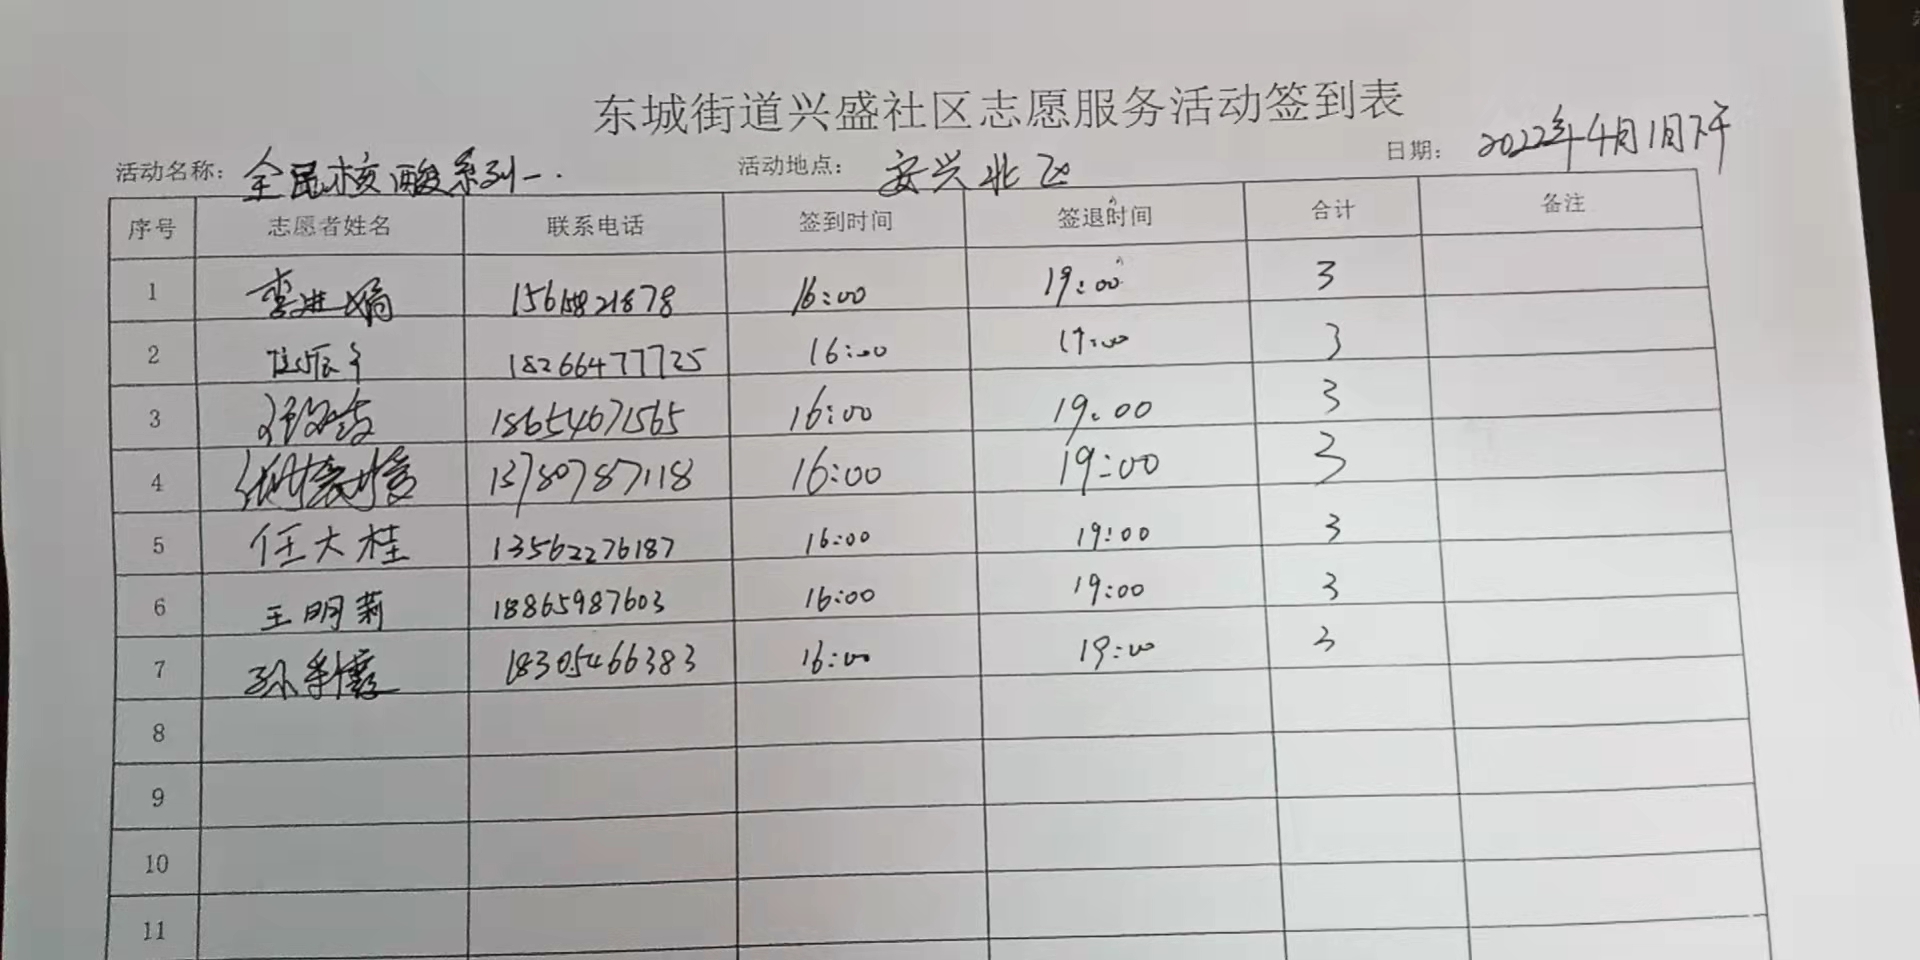 东城街道兴盛社区志愿服务活动签到表
活动名称: 全民核酸系列一. 活动地点: 安兴北区 日期: 2022年4月1日下午
序号 志愿者姓名 联系电话 签到时间 签退时间 合计 备注
1 李进娟 15615821878 16:00 19:00 3
2 18266477725 16:00 19:00 3
3 18654671565 16:00 19:00 3
4 13780787118 16:00 19:00 3
5 任大桂 13562276187 16:00 19:00 3
6 王明莉 18865987603 16:00 19:00 3
7 孙秀霞 18305466383 16:00 19:00 3
8
9
10
11